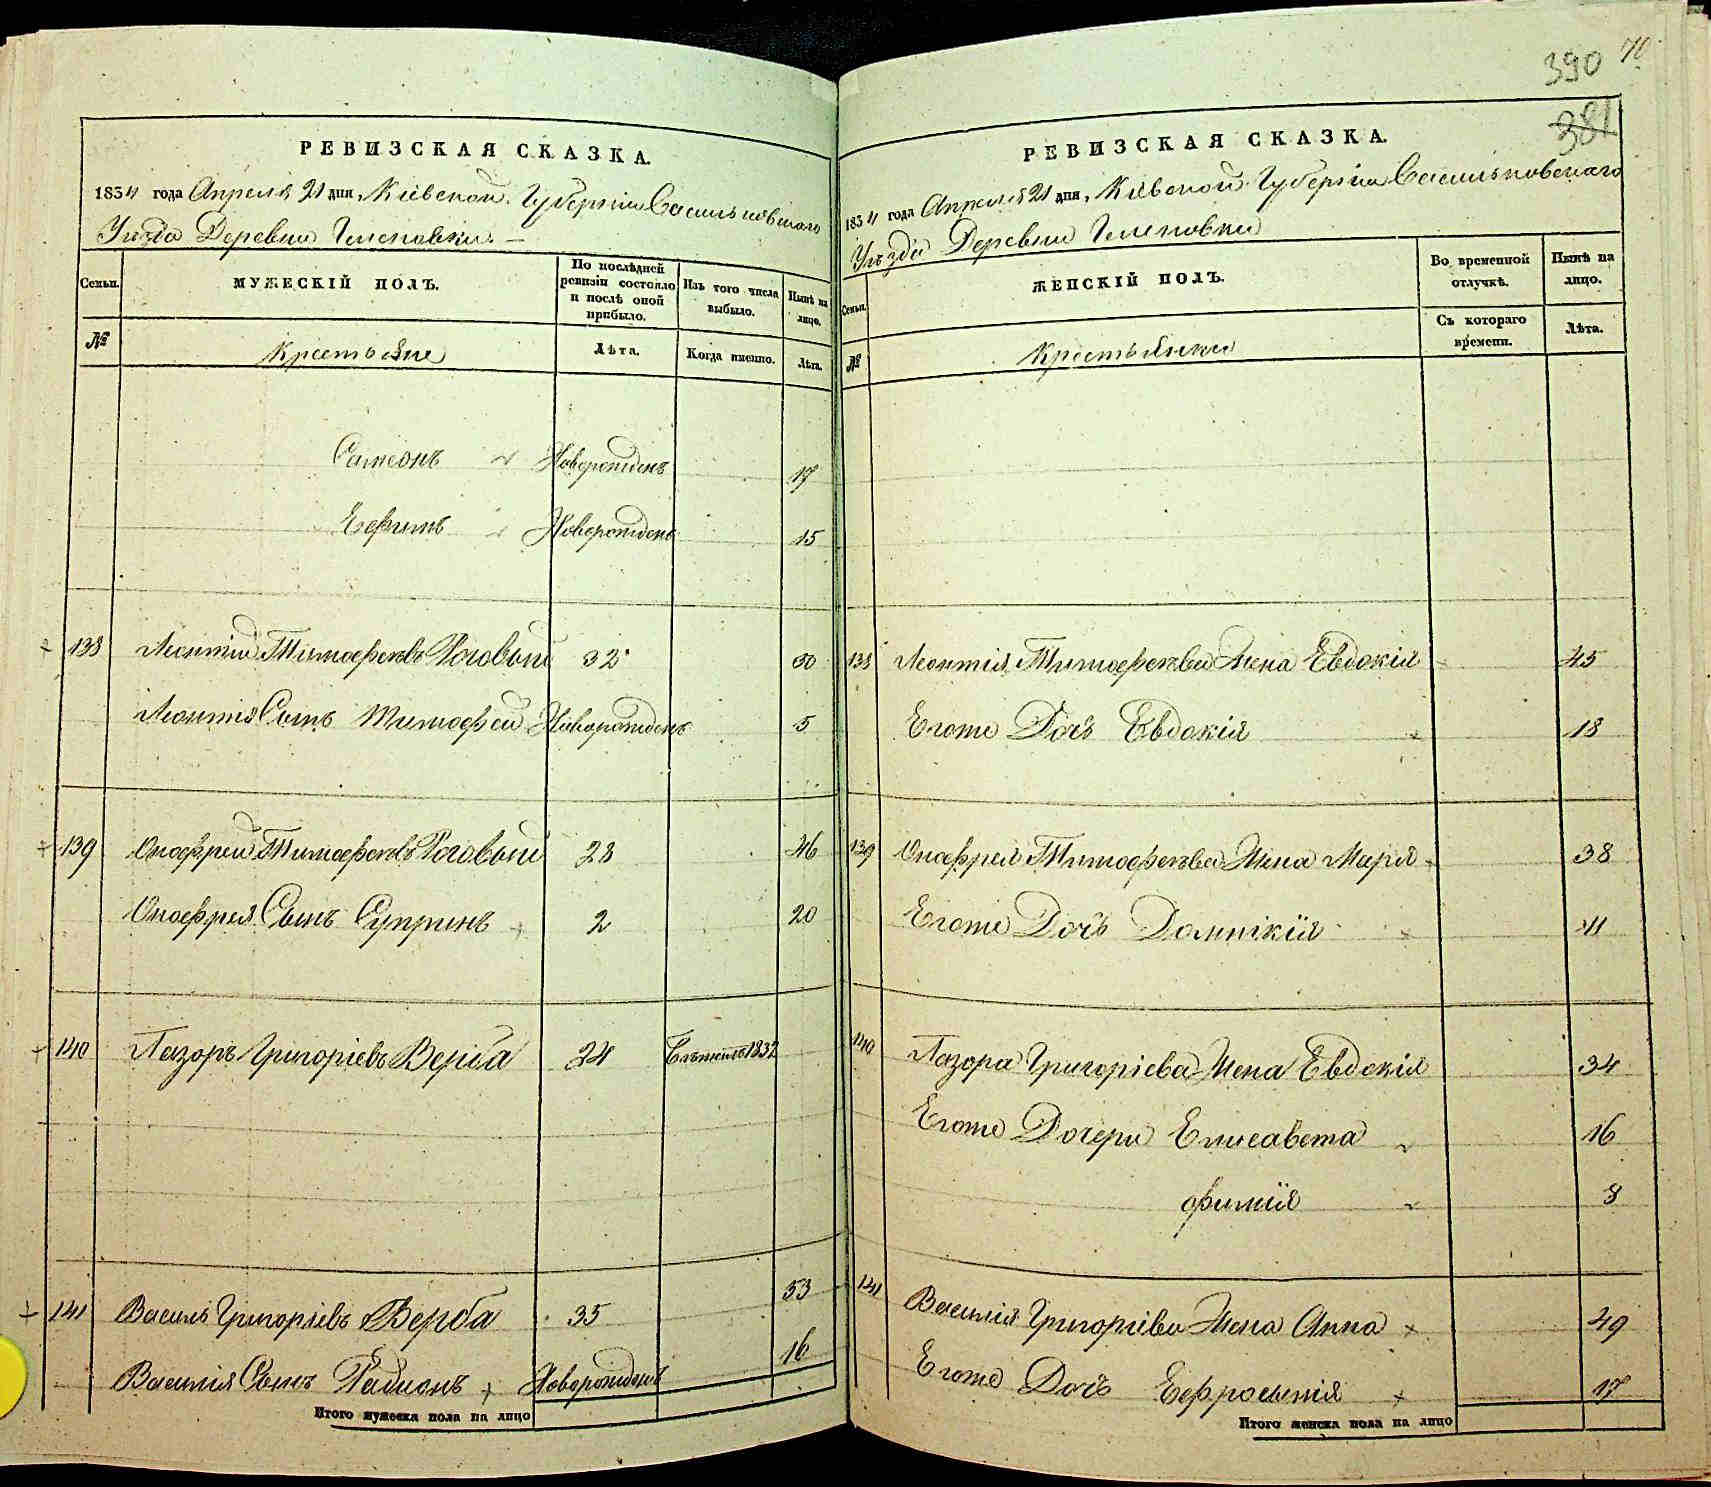 390
381
РЕВИЗСКАЯ СКАЗКА.
1834 года Апреля 21 дня, Кіевской Губерніи Васильковскаго
Уезда Деревни
Семьи.
МУЖЕСКІЙ ПОЛЪ.
По послѣдней ревизіи состояло и послѣ оной прибыло.
Изъ того числа выбыло.
Нынѣ на лицо.
№
Крестьяне
Лѣта.
Когда именно.
Лѣта.
Самеонъ Новорожденъ 17
Ефимъ Новорожденъ 15
138 Леонтій Тимофеевъ Роговый 32 50
Леонтія Сынъ Тимофей Новорожденъ 5
139 Онофрей Тимофеевъ Роговый 28 46
Онофрея Сынъ Супрунъ 2 20
140 Лазоръ Григоріевъ Верба 24 1832
141 Василь Григоріевъ Верба 35 53
Василія Сынъ Новорожденъ 16
Итого мужеска пола на лицо
РЕВИЗСКАЯ СКАЗКА.
1834 года Апреля 21 дня, Кіевской Губерніи Васильковскаго
Уѣзда Деревни
Семьи.
ЖЕНСКІЙ ПОЛЪ.
Во временной отлучкѣ.
Нынѣ на лицо.
№
Крестьянки
Съ котораго времени.
Лѣта.
138 Леонтія Тимофеева Жена Евдокія 45
Егоже Дочь Евдокія 18
139 Онофрея Тимофеева Жена Марія 38
Егоже Дочь Домнікія 11
140 Лазора Григоріева Жена Евдокія 34
Егоже Дочери Елисавета 16
Фимія 8
141 Василія Григоріева Жена Анна 49
Егоже Дочь Ефросинія 17
Итого женска пола на лицо